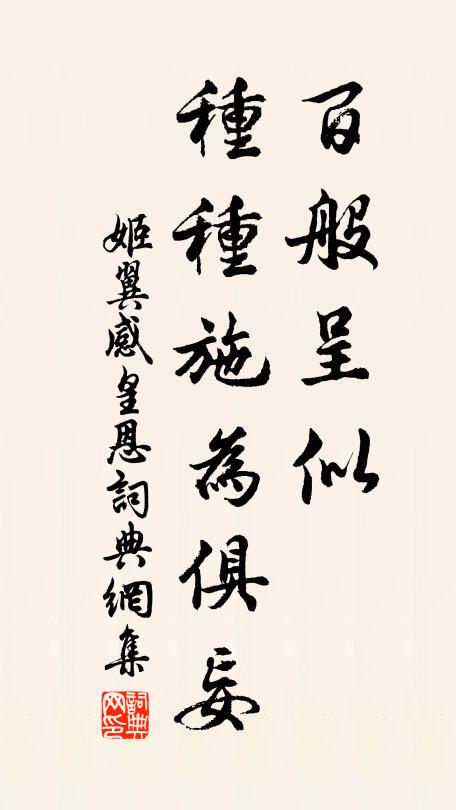 百般呈似
種種施為俱妄
姬翼感皇恩詞典網集
詞典网印